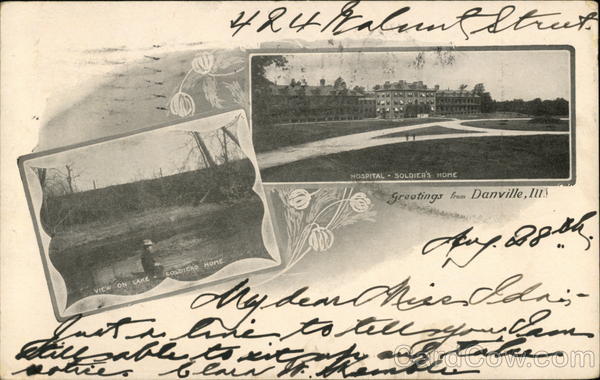 424 Walnut Street.
HOSPITAL - SOLDIER'S HOME
Greetings from Danville, Ill.
VIEW ON LAKE - SOLDIERS HOME
Aug. 28th.
My dear Miss Ida:-
Just a line to tell you, I am
still able to sit up &
Clara W.
CardCow.com